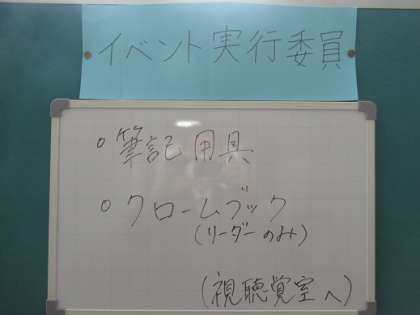 イベント実行委員
○筆記用具
○クロームブック
(リーダーのみ)
(視聴覚室へ)